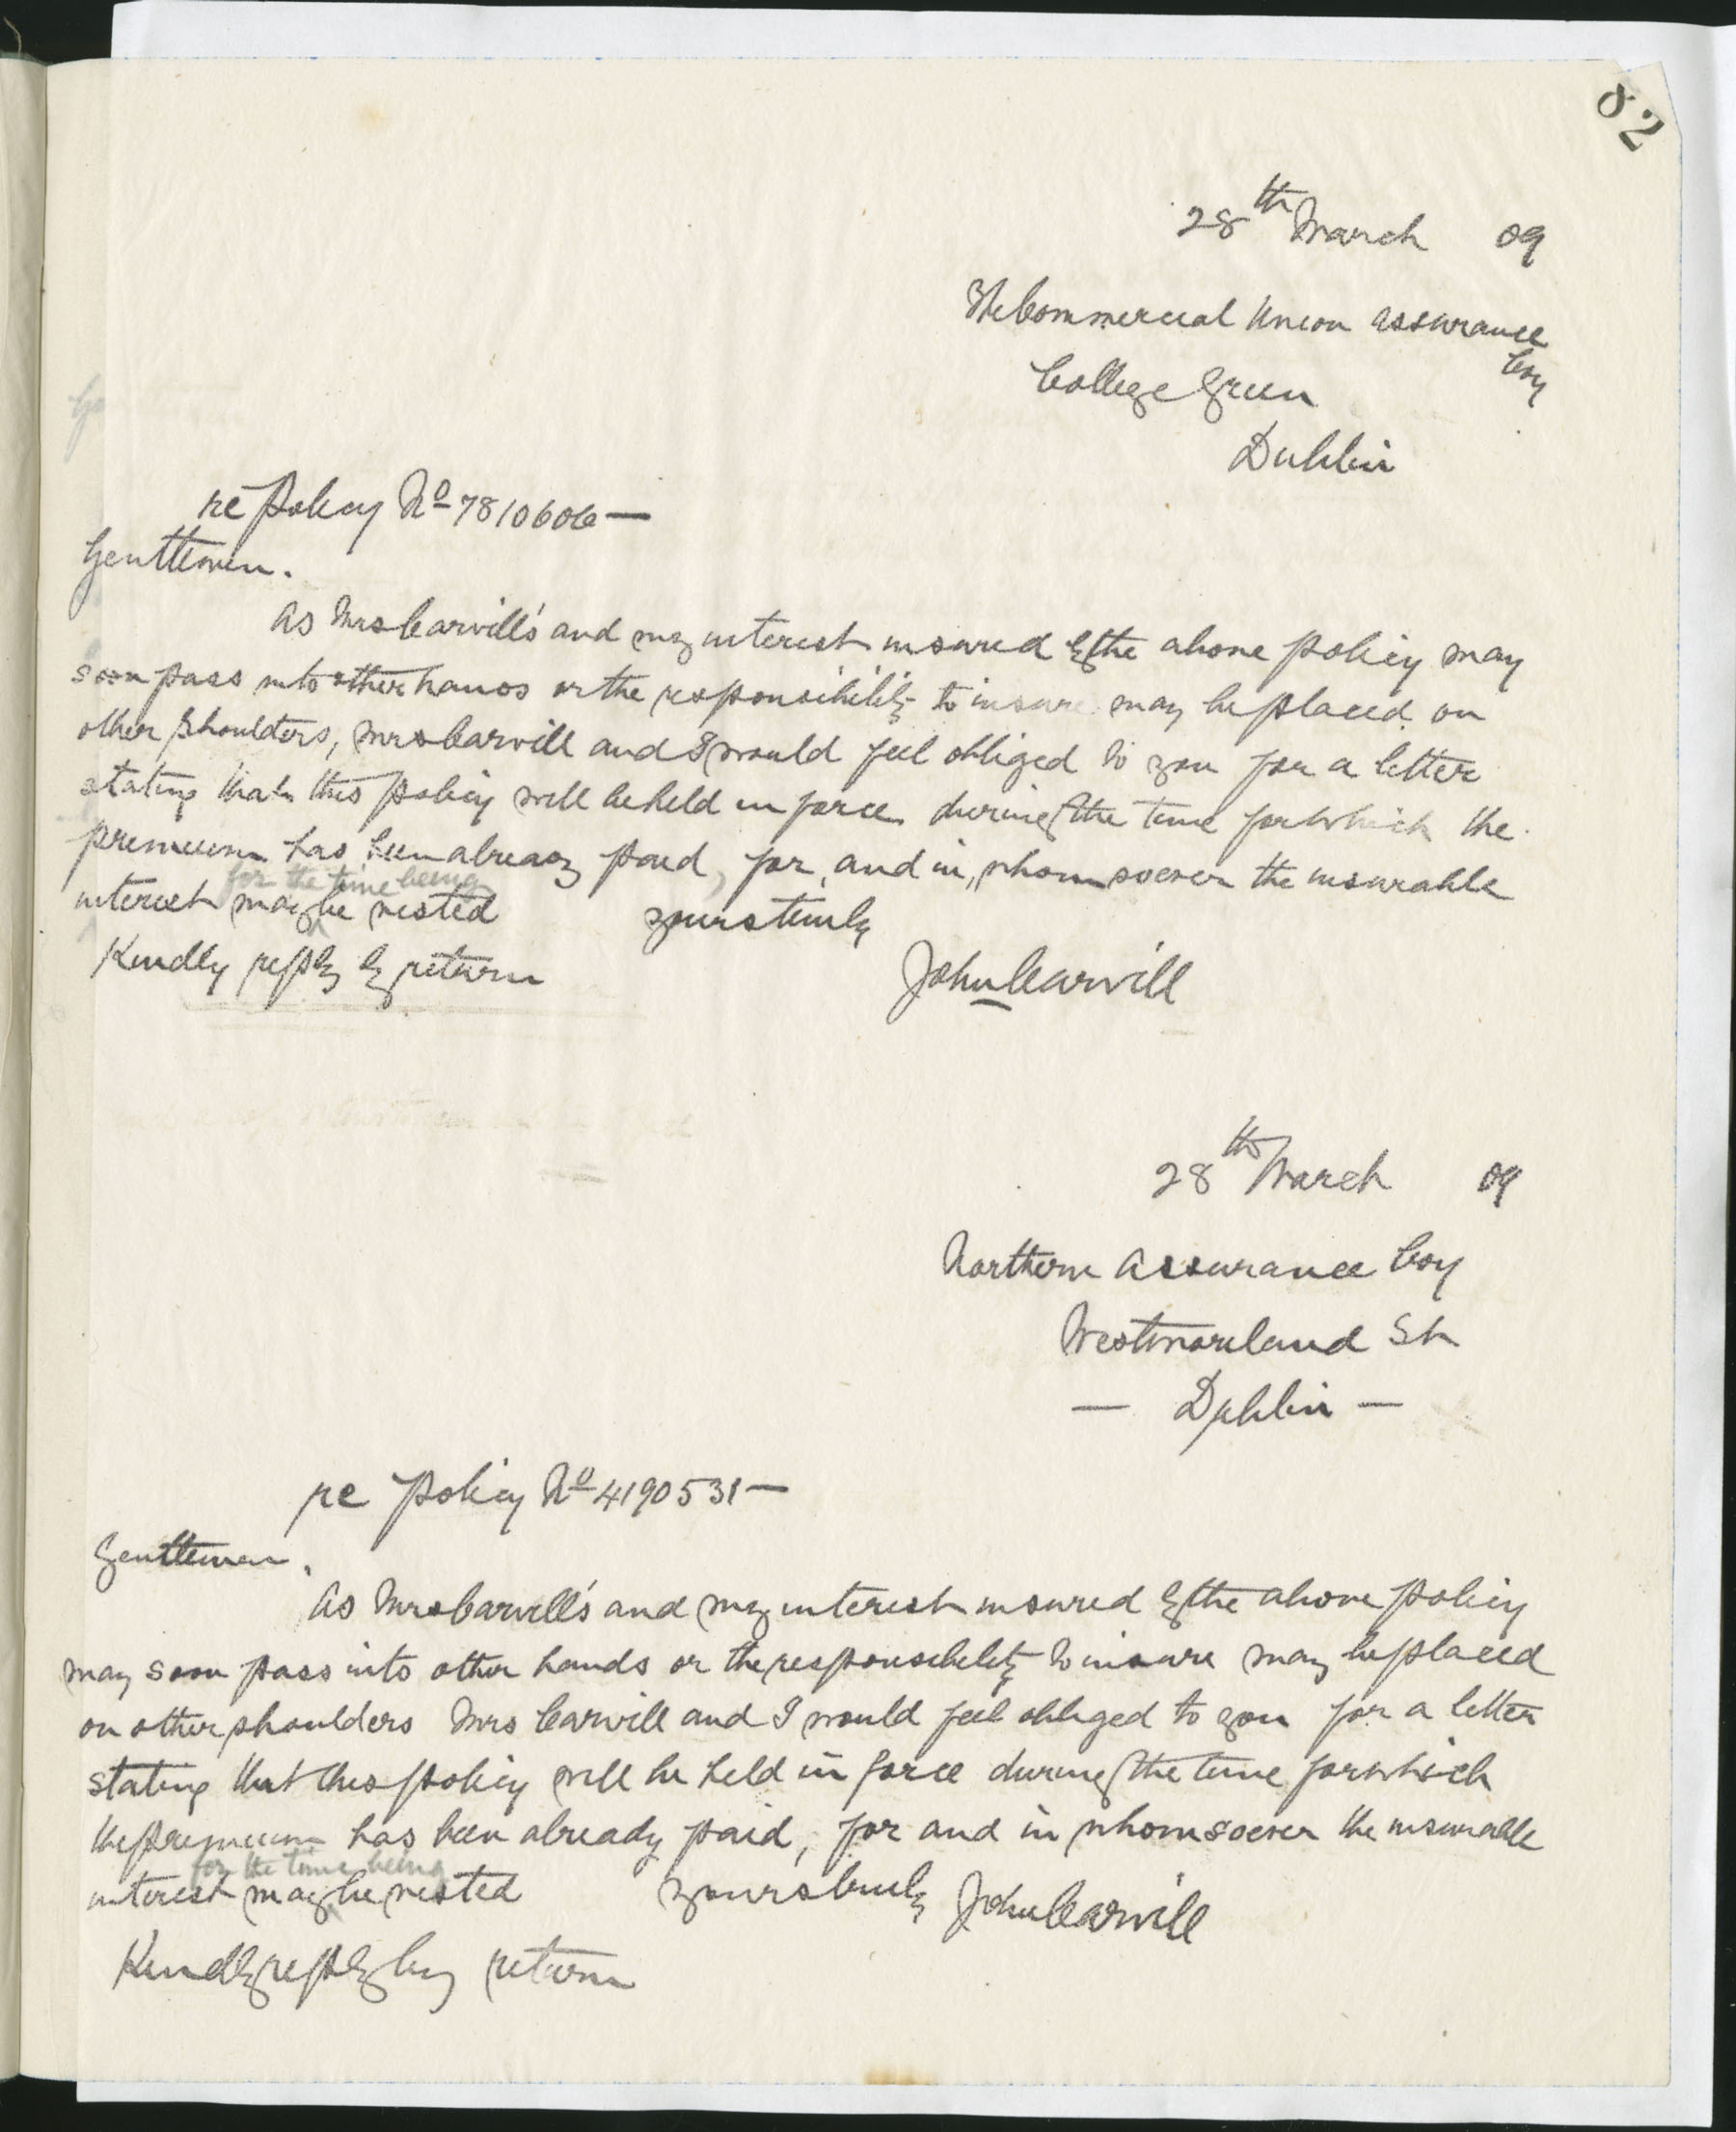 82
28th March 09
The Commercial Union Assurance
Coy
College Green
Dublin
re Policy No 7810606—
Gentlemen.
As Mrs Carvill's and my interest insured by the above policy may
soon pass into other hands or the responsibility to insure may be placed on
other shoulders, Mrs Carvill and I would feel obliged to you for a letter
stating that this policy will be held in force during the time for which the
premium has been already paid, for, and in, whomsoever the insurable
for the time being
interest may be vested yours truly
Kindly reply by return John Carvill
28th March 09
Northern Assurance Coy
Westmoreland St
— Dublin —
re Policy No 4190531—
Gentlemen.
As Mrs Carvill's and my interest insured by the above policy
may soon pass into other hands or the responsibility to insure may be placed
on other shoulders Mrs Carvill and I would feel obliged to you for a letter
stating that this policy will be held in force during the time for which
the premium has been already paid, for and in whomsoever the insurable
for the time being
interest may be vested yours truly John Carvill
Kindly reply by return